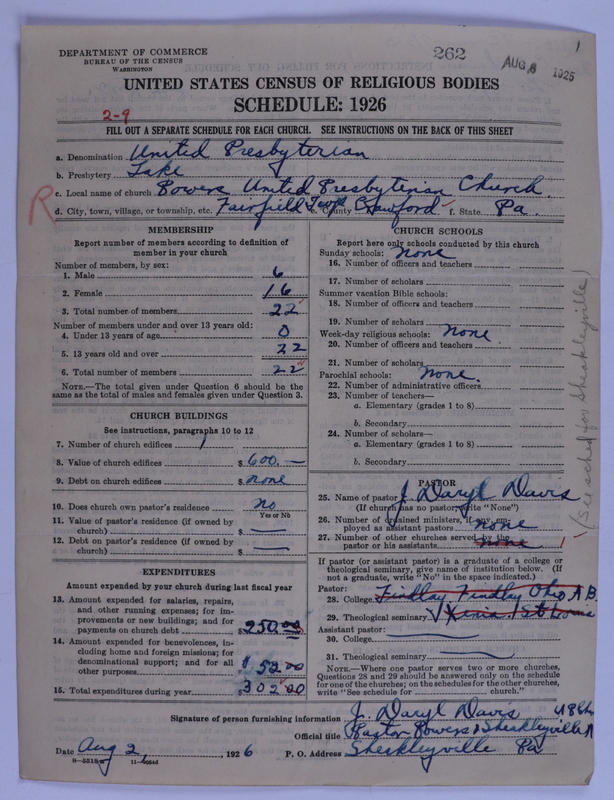 262
AUG 6 1926
1
DEPARTMENT OF COMMERCE
BUREAU OF THE CENSUS
WASHINGTON
UNITED STATES CENSUS OF RELIGIOUS BODIES
SCHEDULE: 1926
2-9
FILL OUT A SEPARATE SCHEDULE FOR EACH CHURCH. SEE INSTRUCTIONS ON THE BACK OF THIS SHEET
a. Denomination United Presbyterian
b. Presbytery Lake
c. Local name of church Powers United Presbyterian Church
R
d. City, town, village, or township, etc. Fairfield Twp e. County Crawford f. State Pa.
MEMBERSHIP
Report number of members according to definition of
member in your church
Number of members, by sex:
1. Male 6
2. Female 16
3. Total number of members 22
Number of members under and over 13 years old:
4. Under 13 years of age 0
5. 13 years old and over 22
6. Total number of members 22
NOTE.—The total given under Question 6 should be the
same as the total of males and females given under Question 3.
CHURCH BUILDINGS
See instructions, paragraphs 10 to 12
7. Number of church edifices 1
8. Value of church edifices $ 600.—
9. Debt on church edifices $ none
10. Does church own pastor's residence no
Yes or No
11. Value of pastor's residence (if owned by
church) $ —
12. Debt on pastor's residence (if owned by
church) $ —
EXPENDITURES
Amount expended by your church during last fiscal year
13. Amount expended for salaries, repairs,
and other running expenses; for im-
provements or new buildings; and for
payments on church debt $ 250.00
14. Amount expended for benevolences, in-
cluding home and foreign missions; for
denominational support; and for all
other purposes $ 52.00
15. Total expenditures during year $ 302.00
CHURCH SCHOOLS
Report here only schools conducted by this church
Sunday schools: None
16. Number of officers and teachers
17. Number of scholars
Summer vacation Bible schools:
18. Number of officers and teachers
19. Number of scholars
Week-day religious schools: None
20. Number of officers and teachers
21. Number of scholars
Parochial schools: None.
22. Number of administrative officers
23. Number of teachers—
a. Elementary (grades 1 to 8)
b. Secondary
24. Number of scholars—
a. Elementary (grades 1 to 8)
b. Secondary
(See sched for Sheakleyville)
PASTOR
25. Name of pastor J. Daryl Davis
(If church has no pastor, write "None")
26. Number of ordained ministers, if any, em-
ployed as assistant pastors none
27. Number of other churches served by the
pastor or his assistants none 1
If pastor (or assistant pastor) is a graduate of a college or
theological seminary, give name of institution below. (If
not a graduate, write "No" in the space indicated.)
Pastor:
28. College Findlay Findlay Ohio A.B.
29. Theological seminary Xenia St Louis
Assistant pastor:
30. College
31. Theological seminary
NOTE.—Where one pastor serves two or more churches,
Questions 28 and 29 should be answered only on the schedule
for one of the churches; on the schedules for the other churches,
write "See schedule for ____ church."
Signature of person furnishing information J. Daryl Davis
Official title Pastor Powers & Sheakleyville
Date Aug 2, 1926 P. O. Address Sheakleyville Pa